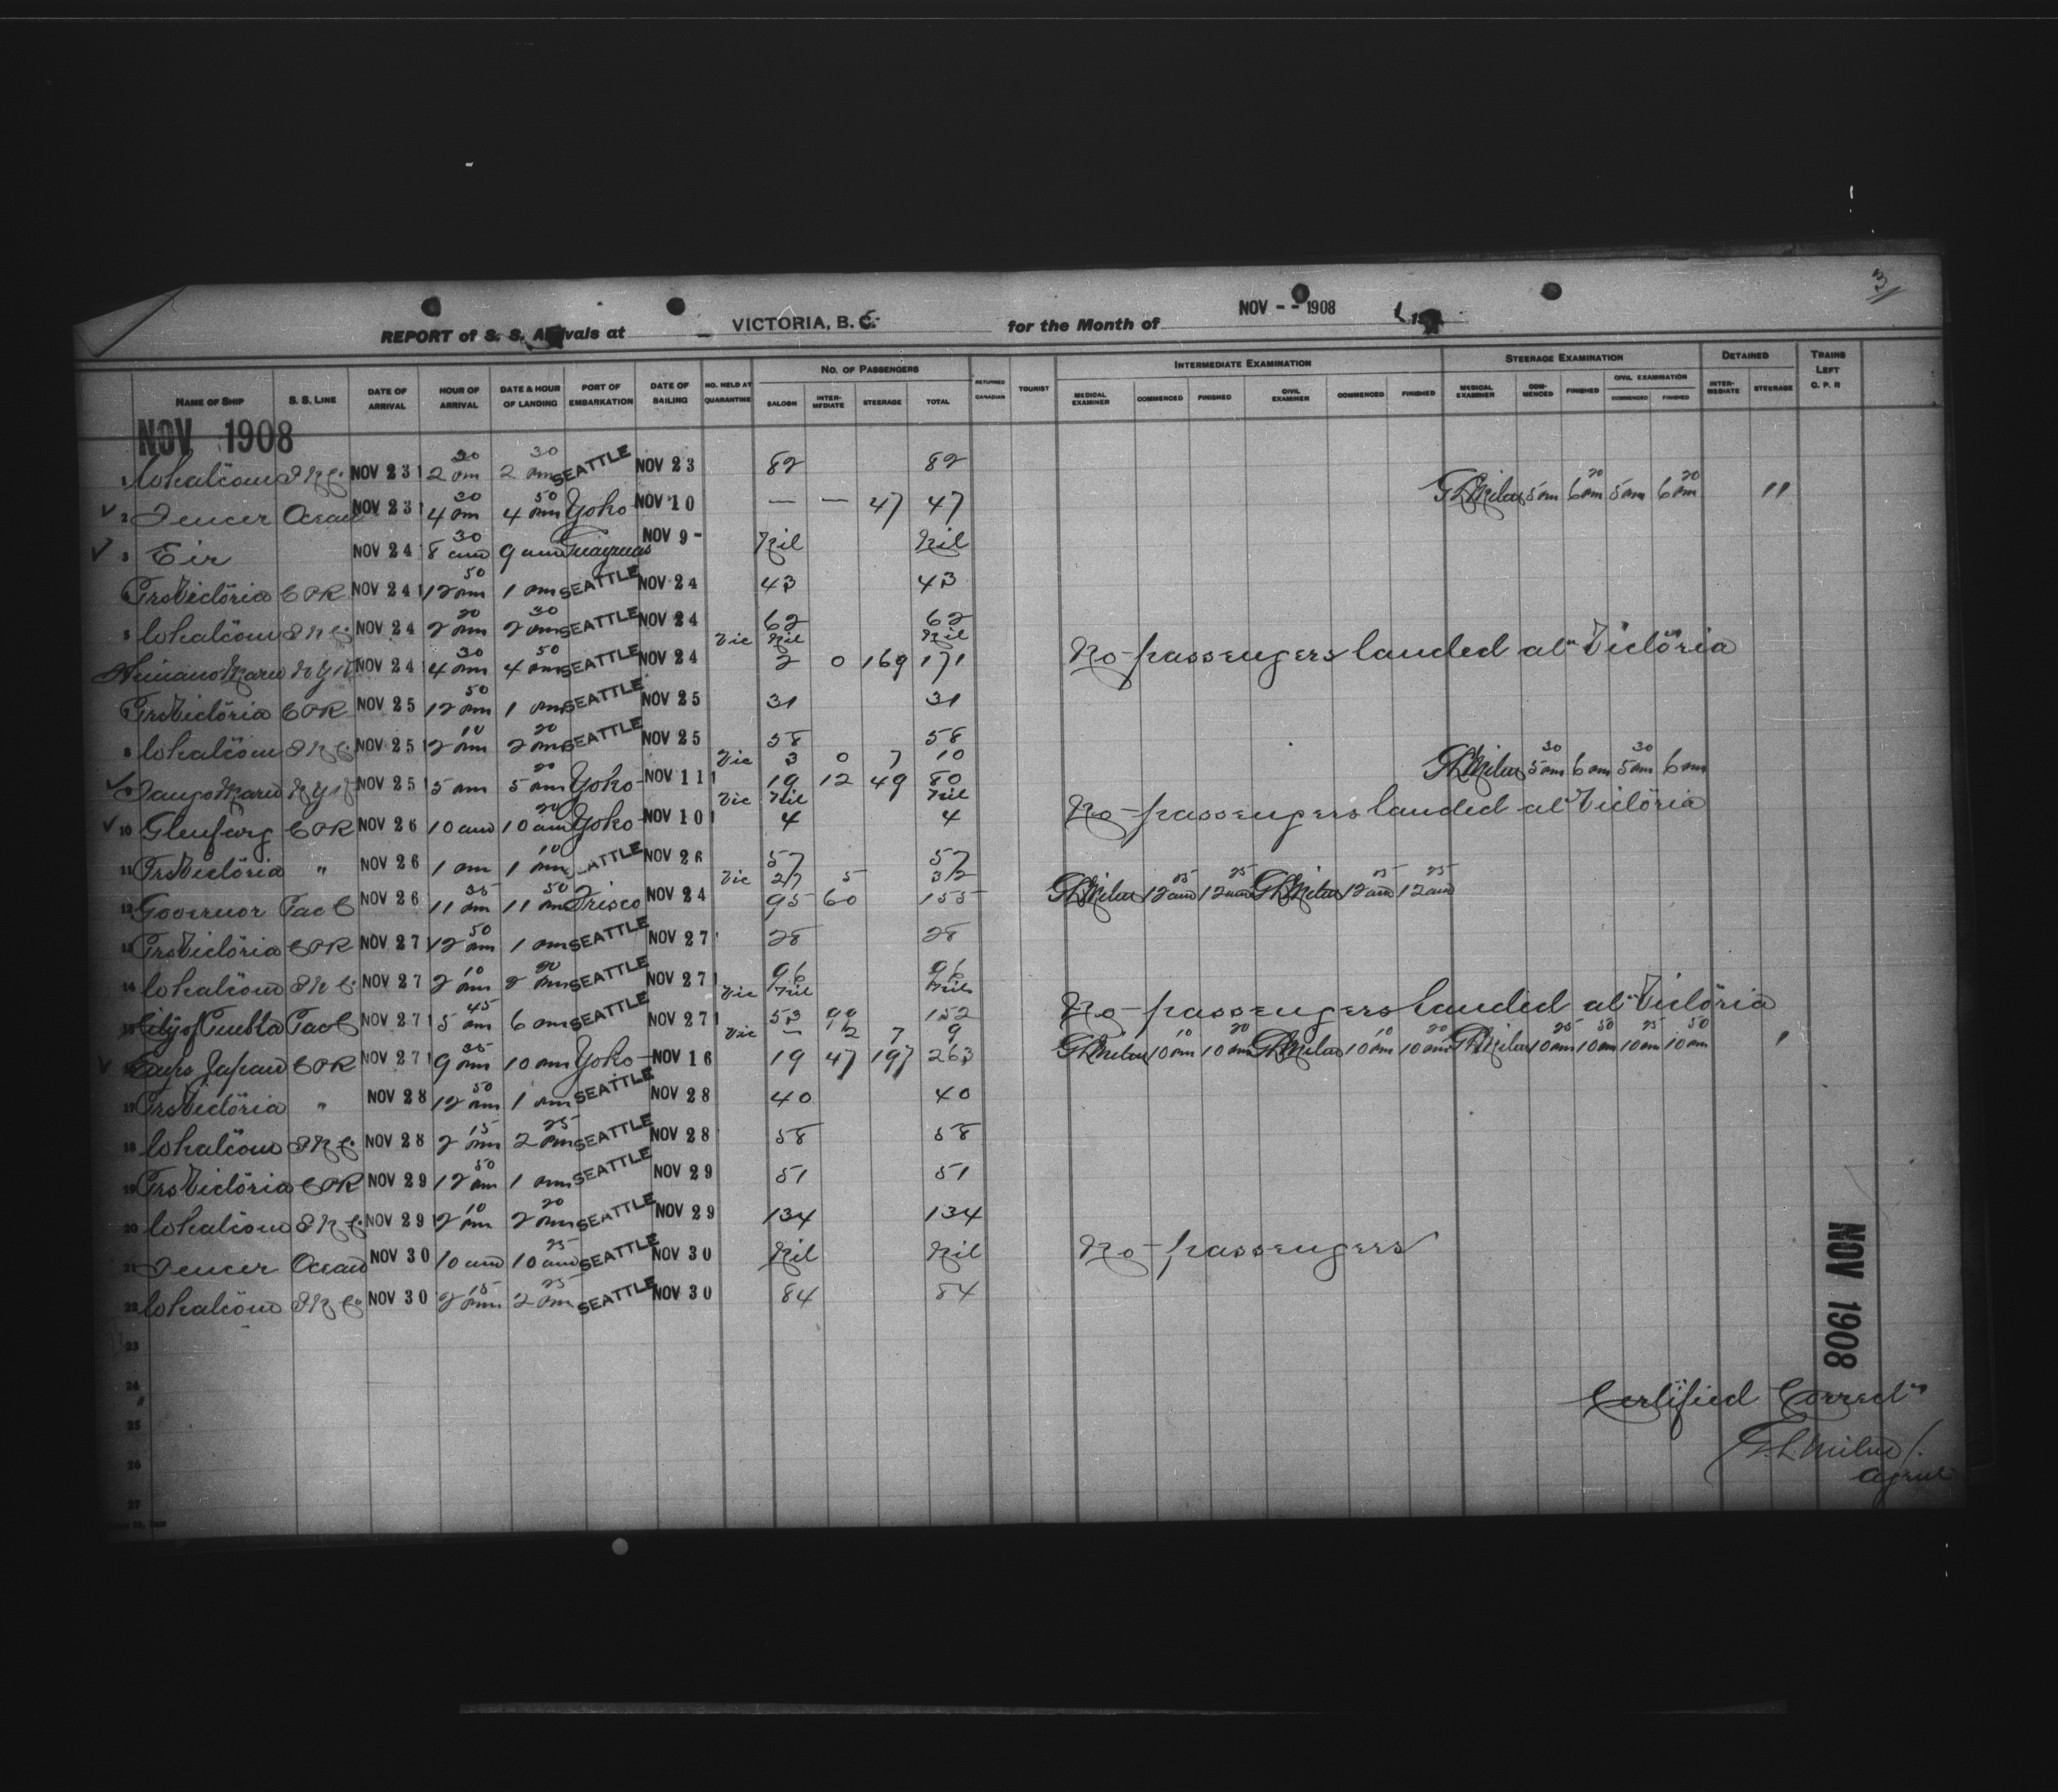 3/
REPORT of S. S. Arrivals at VICTORIA, B. C. for the Month of NOV - - 1908 19
NAME OF SHIP S. S. LINE DATE OF ARRIVAL HOUR OF ARRIVAL DATE & HOUR OF LANDING PORT OF EMBARKATION DATE OF SAILING NO. HELD AT QUARANTINE NO. OF PASSENGERS SALOON INTER-MEDIATE STEERAGE TOTAL RETURNED CANADIAN TOURIST INTERMEDIATE EXAMINATION MEDICAL EXAMINER COMMENCED FINISHED CIVIL EXAMINER COMMENCED FINISHED STEERAGE EXAMINATION MEDICAL EXAMINER COM-MENCED FINISHED CIVIL EXAMINATION COMMENCED FINISHED DETAINED INTER-MEDIATE STEERAGE TRAINS LEFT C. P. R
NOV 1908
1 Whatcom NOV 23 2 30 pm 2 30 pm SEATTLE NOV 23 82 82
2 Fencer Ocean NOV 23 4 30 pm 4 50 pm Yoko NOV 10 — — 47 47 G L Milne 5 pm 6 20 pm 5 pm 6 20 pm "
3 Eir NOV 24 8 30 am 9 am Guaymas NOV 9 - Nil Nil
PrsVictoria CPR NOV 24 12 50 pm 1 pm SEATTLE NOV 24 43 43
5 Whatcom NOV 24 2 20 pm 2 30 pm SEATTLE NOV 24 62 62
Vic Nil Nil No passengers landed at Victoria
Maru NYK NOV 24 4 30 pm 4 50 pm SEATTLE NOV 24 2 0 169 171
PrsVictoria CPR NOV 25 12 50 pm 1 pm SEATTLE NOV 25 31 31
8 Whatcom NOV 25 2 10 pm 2 20 pm SEATTLE NOV 25 58 58
Vic 3 0 7 10 G L Milne 5 30 pm 6 pm 5 30 pm 6 pm
Tango Maru NYK NOV 25 5 pm 5 20 pm Yoko NOV 11 19 12 49 80
Vic Nil Nil No passengers landed at Victoria
10 Glenfarg CPR NOV 26 10 am 10 20 am Yoko NOV 10 4 4
11 PrsVictoria " NOV 26 1 pm 1 10 pm SEATTLE NOV 26 57 57
Vic 27 5 32 G L Milne 12 05 am 12 25 am G L Milne 12 05 am 12 25 am
12 Governor Pac C NOV 26 11 35 pm 11 50 pm Frisco NOV 24 95 60 155
13 PrsVictoria CPR NOV 27 12 50 pm 1 pm SEATTLE NOV 27 28 28
14 Whatcom NOV 27 2 10 pm 2 20 pm SEATTLE NOV 27 96 96
Vic Nil Nil No passengers landed at Victoria
15 City of Puebla Pac C NOV 27 5 45 pm 6 pm SEATTLE NOV 27 53 99 152
Vic — 2 7 9 G L Milne 10 10 pm 10 20 pm G L Milne 10 10 pm 10 20 pm G L Milne 10 25 pm 10 50 pm 10 25 pm 10 50 pm '
Emps Japan CPR NOV 27 9 35 pm 10 pm Yoko NOV 16 19 47 197 263
17 PrsVictoria " NOV 28 12 50 pm 1 pm SEATTLE NOV 28 40 40
18 Whatcom NOV 28 2 15 pm 2 25 pm SEATTLE NOV 28 58 58
19 PrsVictoria CPR NOV 29 12 50 pm 1 pm SEATTLE NOV 29 51 51
20 Whatcom NOV 29 2 10 pm 2 20 pm SEATTLE NOV 29 134 134
21 Fencer Ocean NOV 30 10 am 10 25 am SEATTLE NOV 30 Nil Nil No passengers
22 Whatcom NOV 30 2 15 pm 2 25 pm SEATTLE NOV 30 84 84
23
24
25
26
27
NOV 1908
Certified Correct
G. L. Milne
Agent